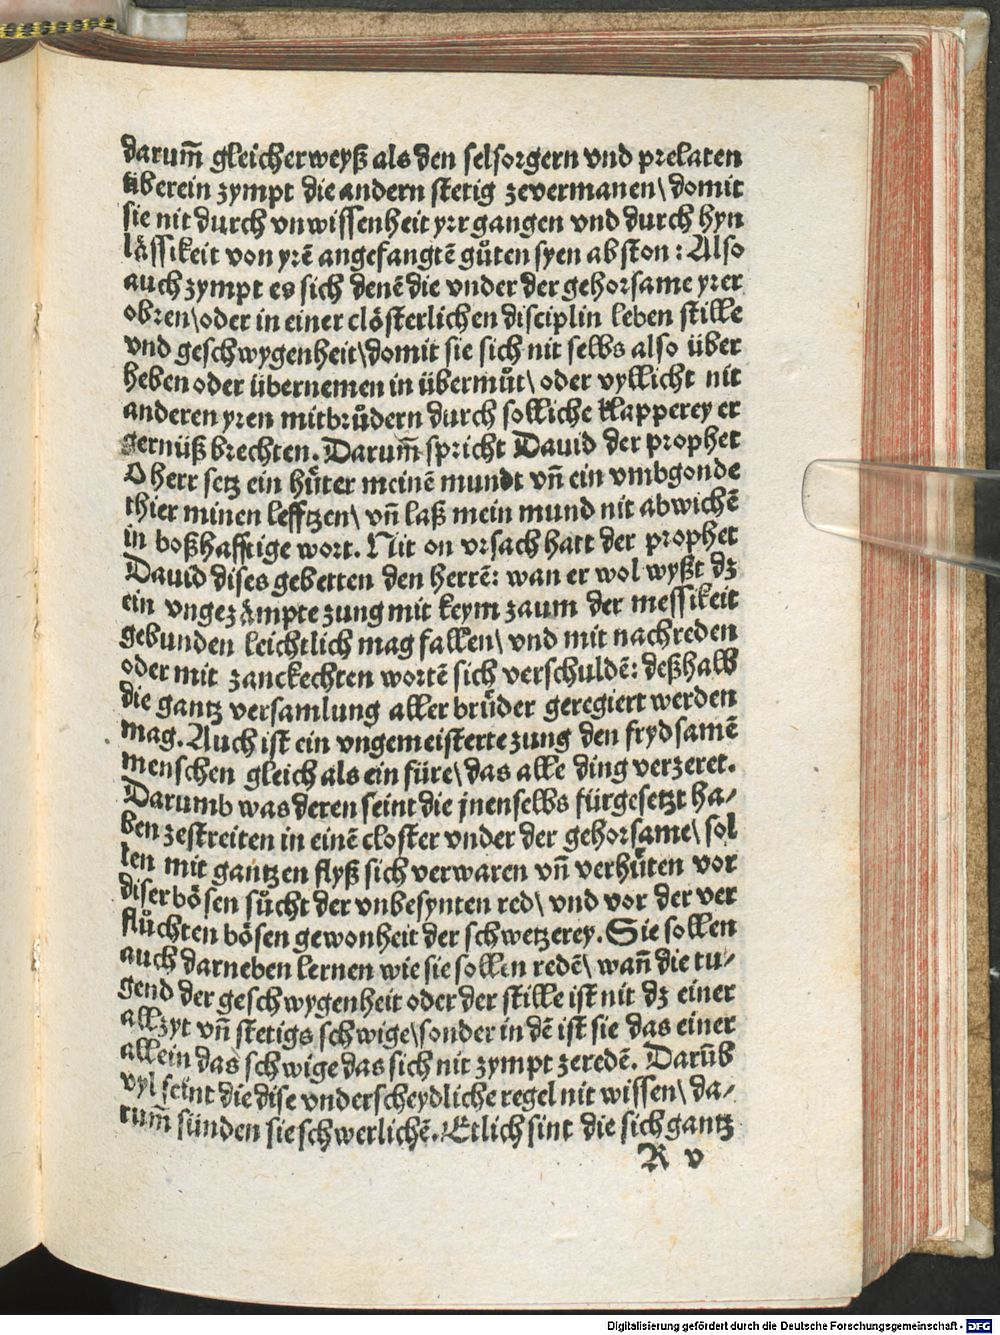 darum̃ gleicherweyß als den selsorgern vnd prelaten
überein zympt die andern stetig zevermanen\ domit
sie nit durch vnwissenheit yrr gangen vnd durch hyn
lässikeit von yrē angefangtē gůten syen abston: Also
auch zympt es sich denē die vnder der gehorsame yrer
obren\ oder in einer clösterlichen disciplin leben stille
vnd geschwygenheit\ domit sie sich nit selbs also über
heben oder übernemen in übermůt\ oder vyllicht nit
anderen yren mitbrůdern durch solliche klapperey er
gernüß brechten. Darum̃ spricht Dauid der prophet
O herr setz ein hüter meinē mundt vñ ein vmbgonde
thier minen lefftzen\ vñ laß mein mund nit abwichē
in boßhafftige wort. Nit on vrsach hatt der prophet
Dauid dises gebetten den herrē: wan er wol wyßt dz
ein vngezämpte zung mit keym zaum der messikeit
gebunden leichtlich mag fallen\ vnd mit nachreden
oder mit zanckechten wortē sich verschuldē: deßhalb
die gantz versamlung aller brüder geregiert werden
mag. Auch ist ein vngemeisterte zung den frydsamē
menschen gleich als ein füre\ das alle ding verzeret.
Darumb was deren seint die jnenselbs fürgesetzt ha/
ben zestreiten in einē closter vnder der gehorsame\ sol
len mit gantzen flyß sich verwaren vñ verhüten vor
diser bösen sůcht der vnbesynten red\ vnd vor der ver
flůchten bösen gewonheit der schwetzerey. Sie sollen
auch darneben lernen wie sie sollen redē\ wañ die tu/
gend der geschwygenheit oder der stille ist nit dz einer
allzyt vñ stetigs schwige\ sonder in dē ist sie das einer
allein das schwige das sich nit zympt zeredē. Darūb
vyl seint die dise vnderscheydliche regel nit wissen\ da/
rum̃ sünden sie schwerlichē. Etlich sint die sich gantz
R v
Digitalisierung gefördert durch die Deutsche Forschungsgemeinschaft - DFG